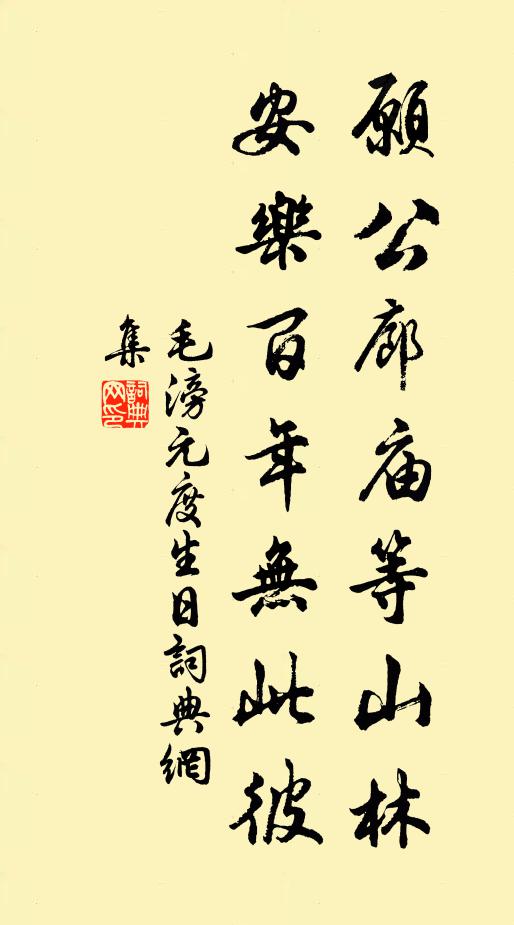 願公廊庙等山林
安樂百年無此彼
毛滂元度生日詞典網
集
詞典
网印